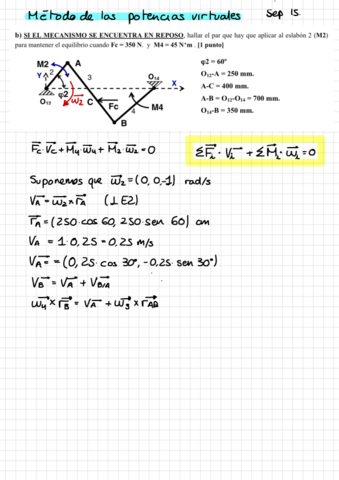 Método de las potencias virtuales
Sep 15
b) SI EL MECANISMO SE ENCUENTRA EN REPOSO, hallar el par que hay que aplicar al eslabón 2 (M2)
para mantener el equilibrio cuando Fc = 350 N. y M4 = 45 N*m . [1 punto]
M2 A
Y 2 3 O14 X
φ2
O12 ω2 C Fc 4 M4
B
φ2 = 60º
O12-A = 250 mm.
A-C = 400 mm.
A-B = O12-O14 = 700 mm.
O14-B = 350 mm.
Fc·Vc + M4·ω4 + M2·ω2 = 0
ΣFi · Vi + ΣMi · ωi = 0
Suponemos que ω2 = (0, 0, -1) rad/s
VA = ω2 × rA (⊥E2)
rA = (250·cos 60, 250·sen 60) mm
VA = 1·0,25 = 0,25 m/s
VA = (0,25·cos 30°, -0,25·sen 30°)
VB = VA + VB/A
ω4 × rB = VA + ω3 × rAB